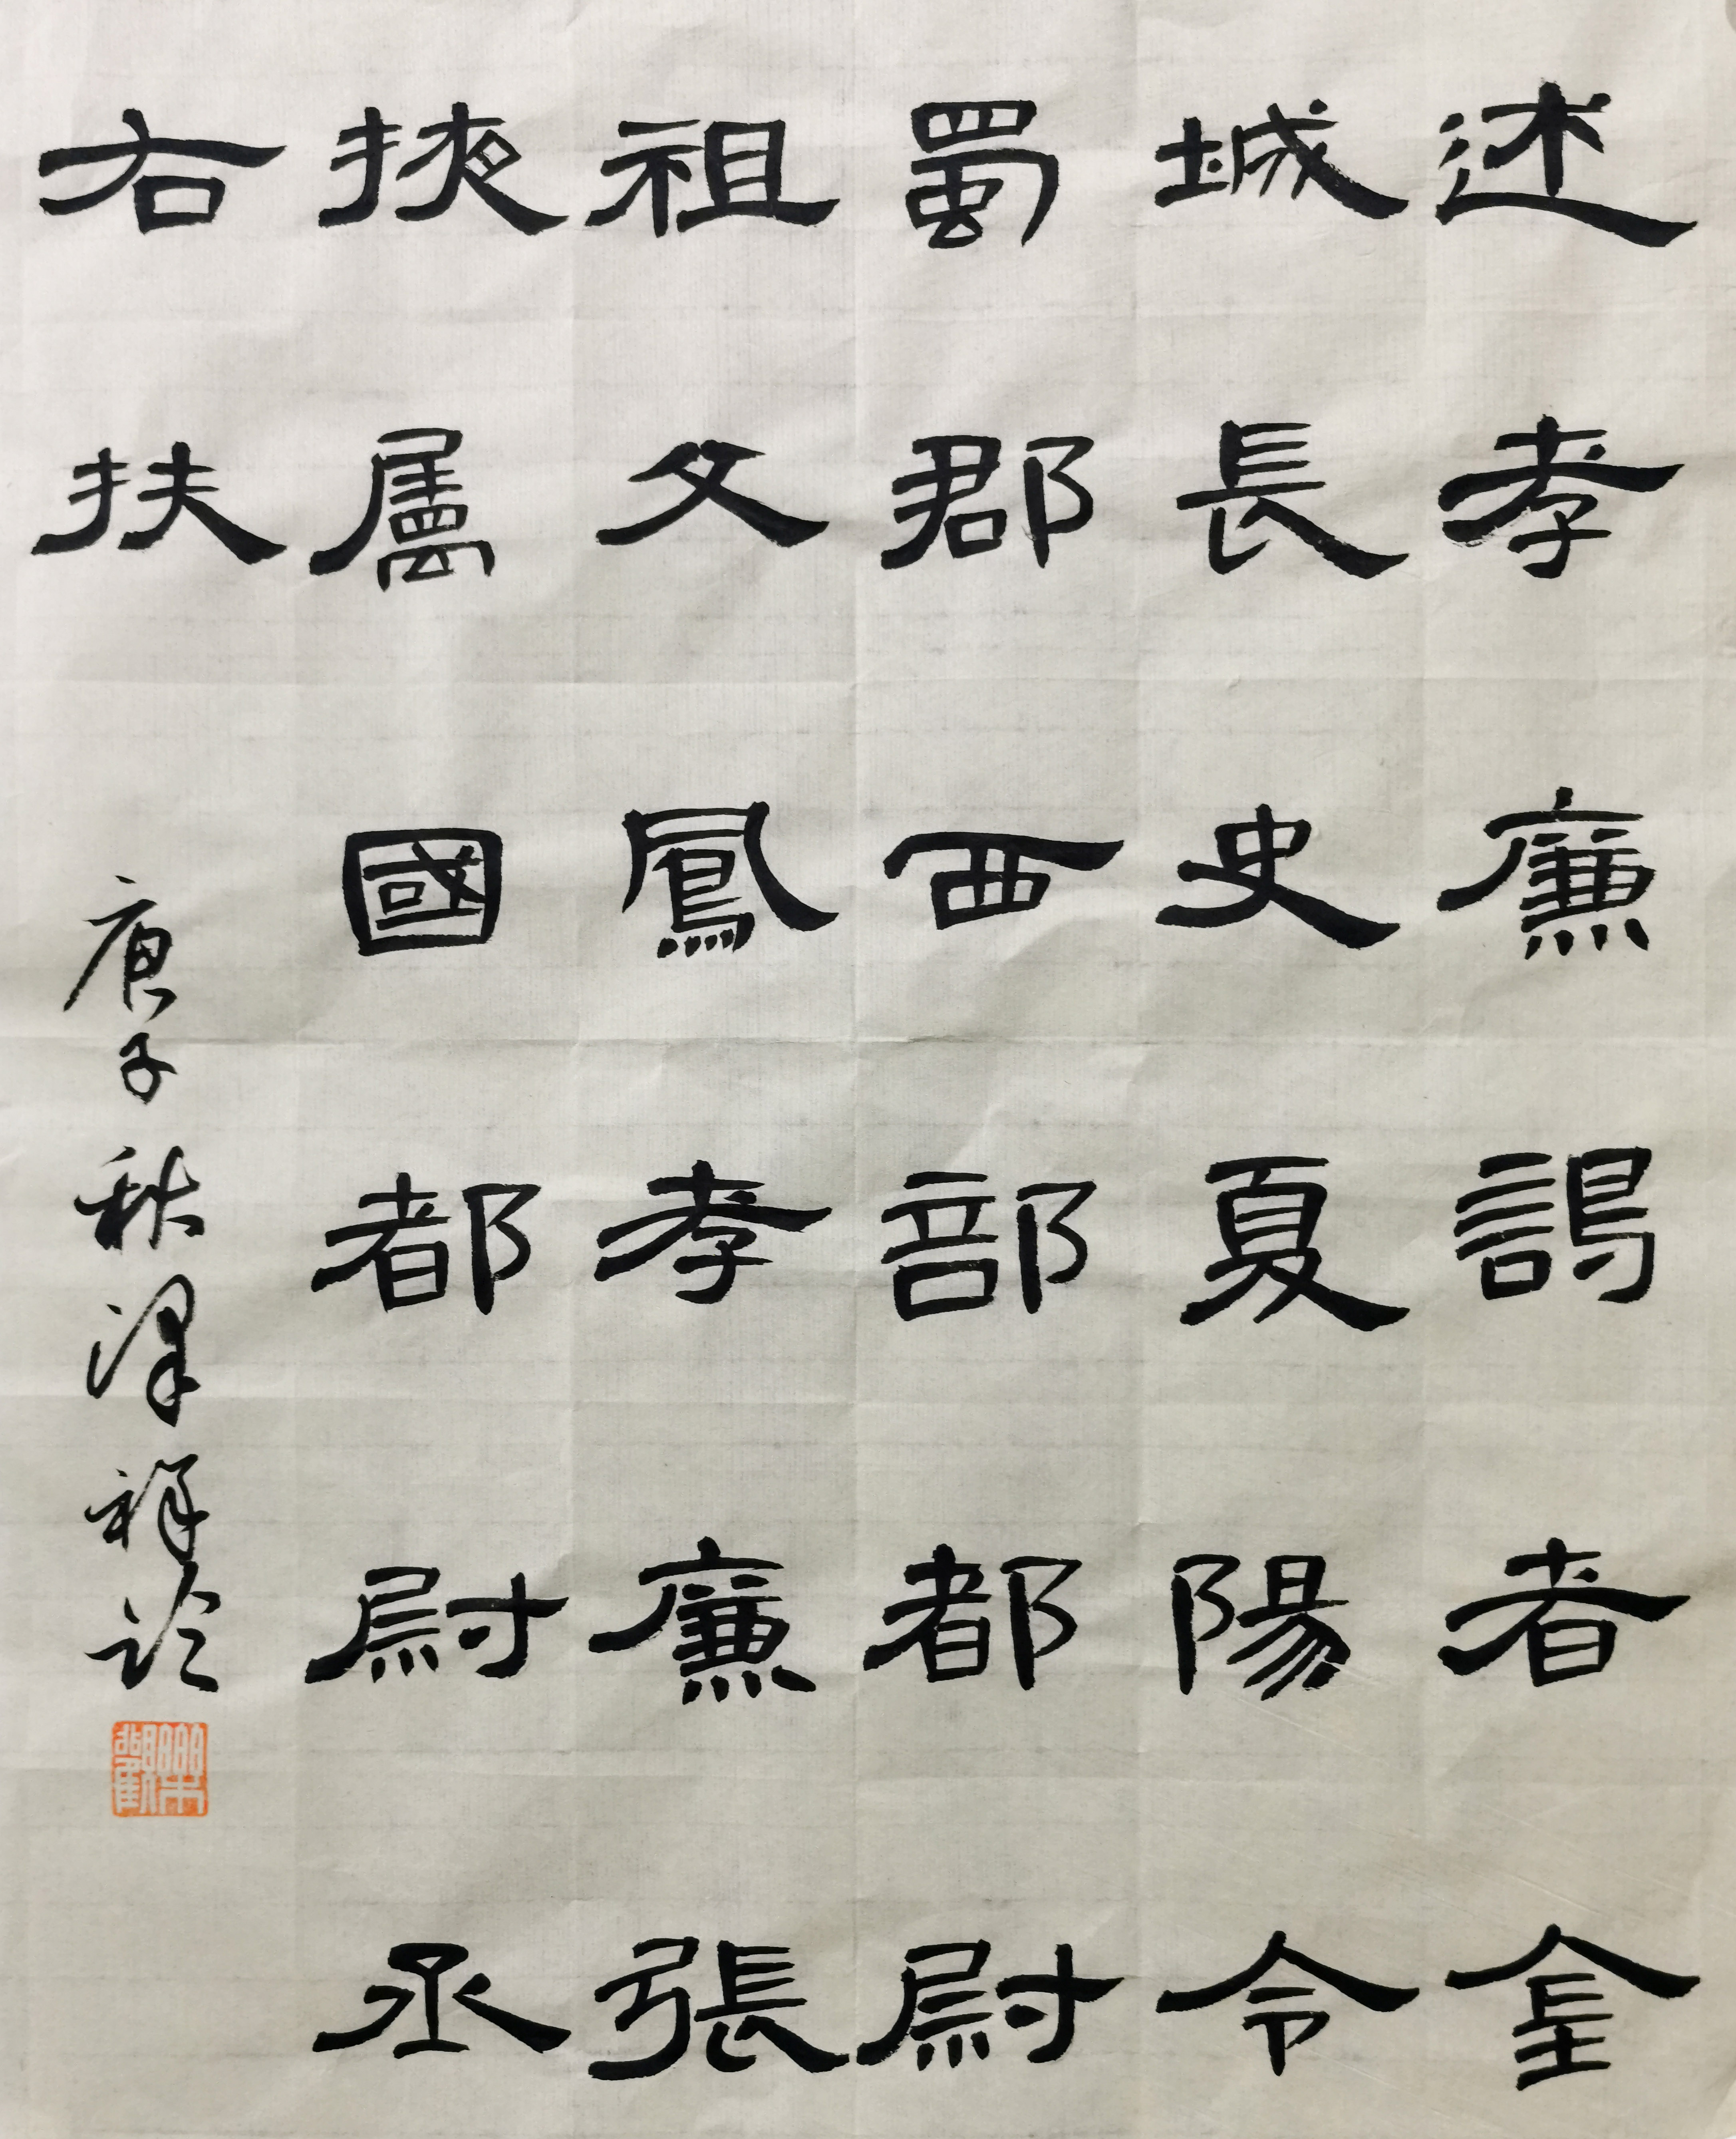 述孝廉謁者金
城長史夏陽令
蜀郡西部都尉
祖父鳳孝廉張
掖屬國都尉丞
右扶
庚子秋澤祥